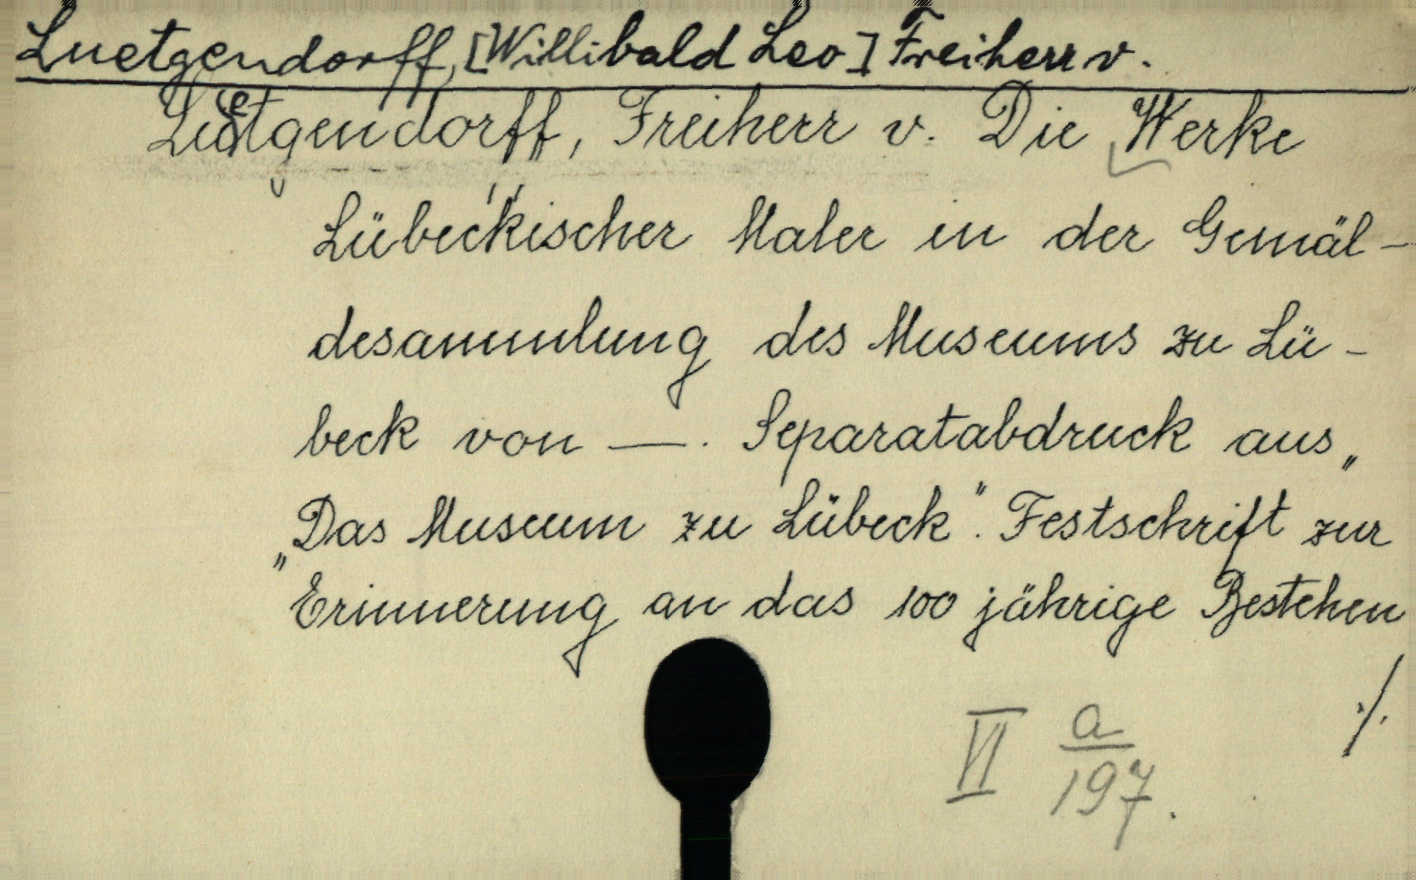 Luetgendorff, [Willibald Leo] Freiherr v.
Luetgendorff, Freiherr v. Die Werke
Lübeckischer Maler in der Gemäl-
desammlung des Museums zu Lü-
beck von —. Separatabdruck aus „
„Das Museum zu Lübeck". Festschrift zur
"Erinnerung an das 100 jährige Bestehen
./.
VI a/197.